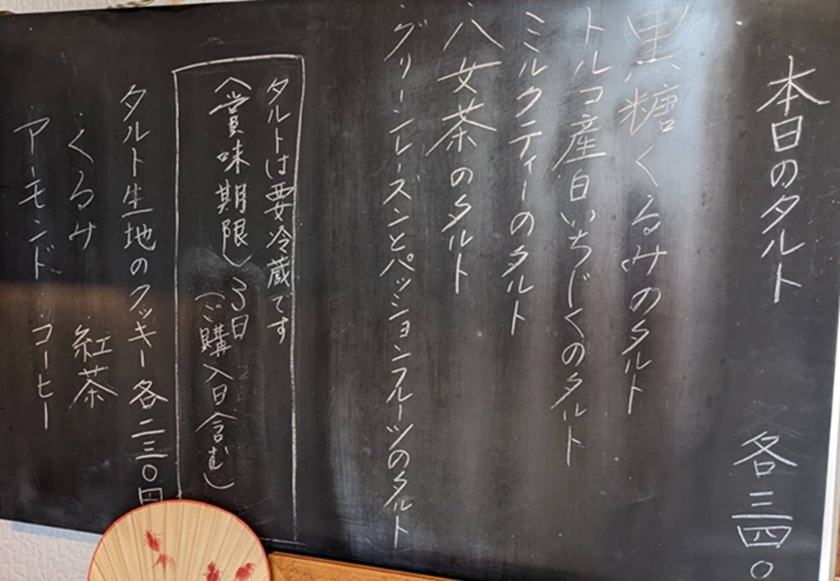 本日のタルト 各三四〇
黒糖くるみのタルト
トルコ産白いちじくのタルト
ミルクティーのタルト
八女茶のタルト
グリーンレーズンとパッションフルーツのタルト
タルトは要冷蔵です
〈賞味期限〉3日(ご購入日含む)
タルト生地のクッキー 各二三〇円
・くるみ ・紅茶
・アーモンド ・コーヒー